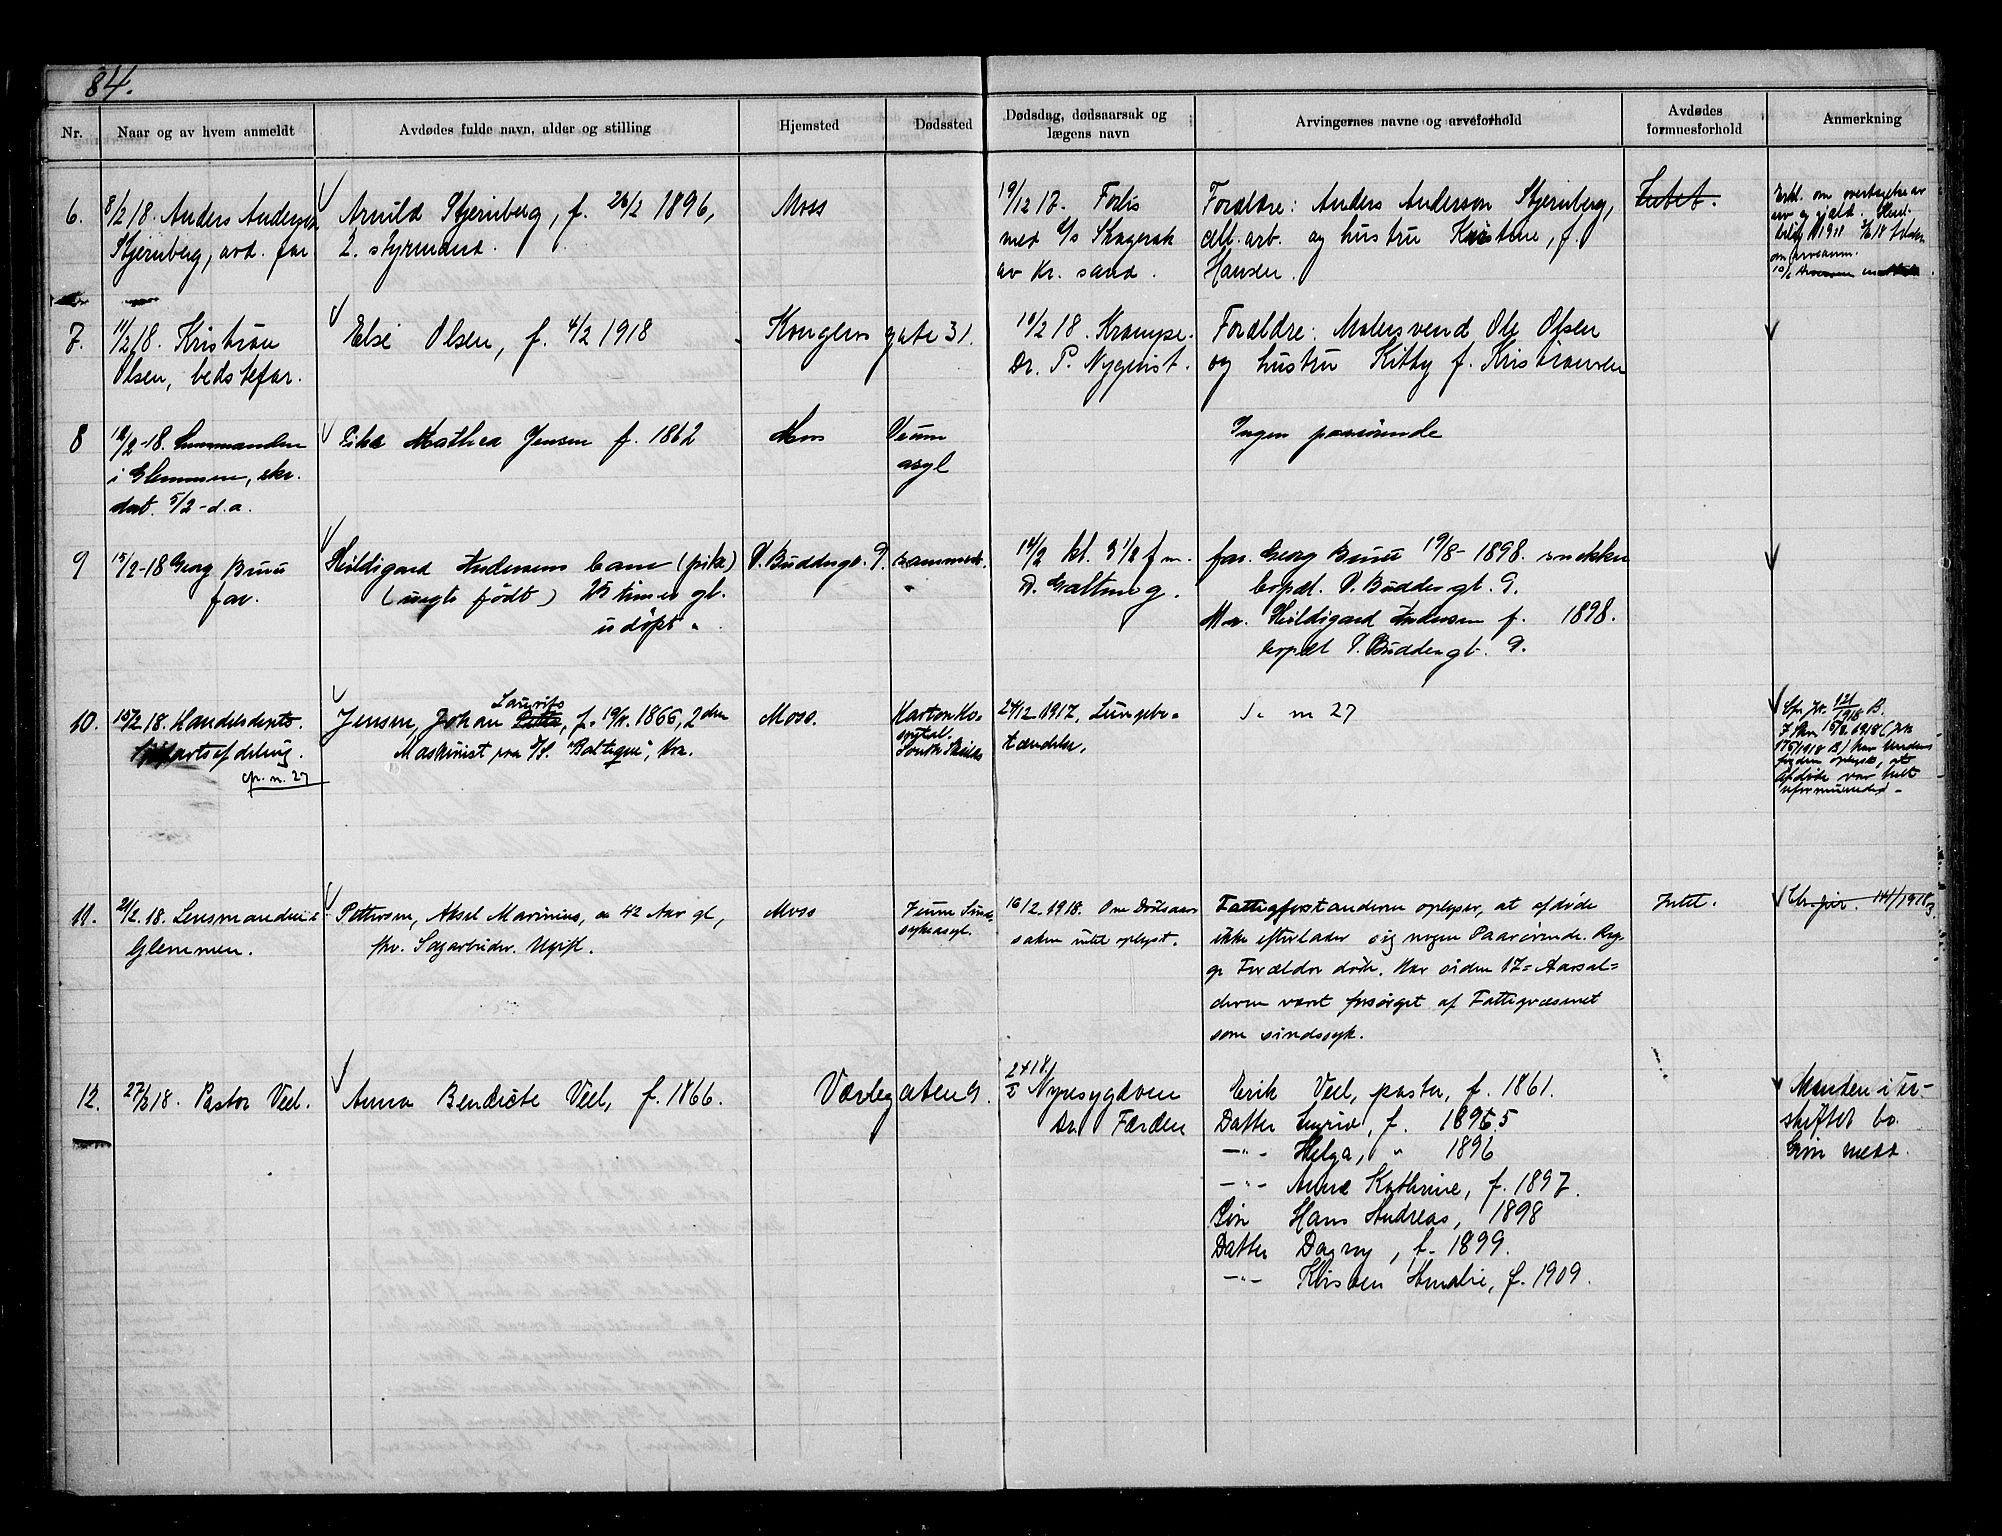 84.
Nr.
Naar og av hvem anmeldt
Avdødes fulde navn, alder og stilling
Hjemsted
Dødssted
Dødsdag, dødsaarsak og
lægens navn
Arvingernes navne og arveforhold
Avdødes
formuesforhold
Anmerkning
6.
8/2 18. Anders Anderson
Stjernberg, avd. far
Arnild Stjernberg, f. 26/2 1896,
2. styrmand.
Moss
19/12 17. Forlis
med S/S Skagerak
av Kr. sand.
Forældre: Anders Anderson Stjernberg,
og hustru Kristine, f.
Hansen.
Intet.
7.
11/2 18. Kristian
Olsen, bedstefar.
Else Olsen, f. 4/2 1918
Kongens gate 31.
10/2 18. Krampe.
Dr. P. Nyquist.
Forældre: Malersvend Ole Olsen
og hustru Kitty f. Kristiansen
8
12/2-18. Lensmanden
i Glemmen, skr.
dat. 5/2-d.a.
Pike Mathea Jensen f. 1862
Moss
Veum
asyl
Ingen paarørende
9
15/2-18 Georg Bruu
far.
Hildigard Andersens barn (pike)
(uegte født) 23 timer gl.
udøpt.
V. Buddesgt. 9.
sammest.
14/2 kl. 3 1/2 f m.
D. Galtung.
far. Georg Bruu 19/8-1898. snekker
bopæl. V. Buddesgt. 9.
Mor. Hildigard Andersen f. 1898.
bopæl V. Buddesgt. 9.
10.
15/2 18. Handelsdepts
Sjøfartsafdeling.
cfr. n. 27
Jensen, Johan Laurits, f. 1866, 2den
Maskinist paa S/S. "Baltique", Kra.
Moss.
Harton Ho-
spital.
South Shields
24/12 1917, Lungebe-
tændelse.
S. n 27
121/1918 B.
afdøde var helt
uformuende.
11.
21/2. 18. Lensmanden i
Glemmen.
Pettersen, Aksel Marinius, ca 42 Aar gl,
fhv. Sagarbeider. Ugift.
Moss
Veum Sind-
sykeasyl.
16/2. 1918. Om Dødsaar-
saken intet oplyst.
Fattigforstanderen oplyser, at afdøde
ikke efterlader sig nogen Paarørende. Beg-
ge Forældre døde. Har siden 17-Aarsal-
deren været forsørget af Fattigvæsenet
som sindssyk.
Intet.
144/1918 B.
12.
27/2 18. Pastor Veel.
Anna Bendicte Veel, f. 1866.
Værlegaten 9.
24/2 18
Nyresygdom
Dr. Færden
Erik Veel, pastor, f. 1861.
Datter Sigrid, f. 1895
—"— Helga, " 1896
—"— Anna Kathrine, f. 1897.
Søn Hans Andreas, 1898
Datter Dagny, f. 1899.
—"— Kirsten Amalie, f. 1909.
Manden i u-
skiftet bo.